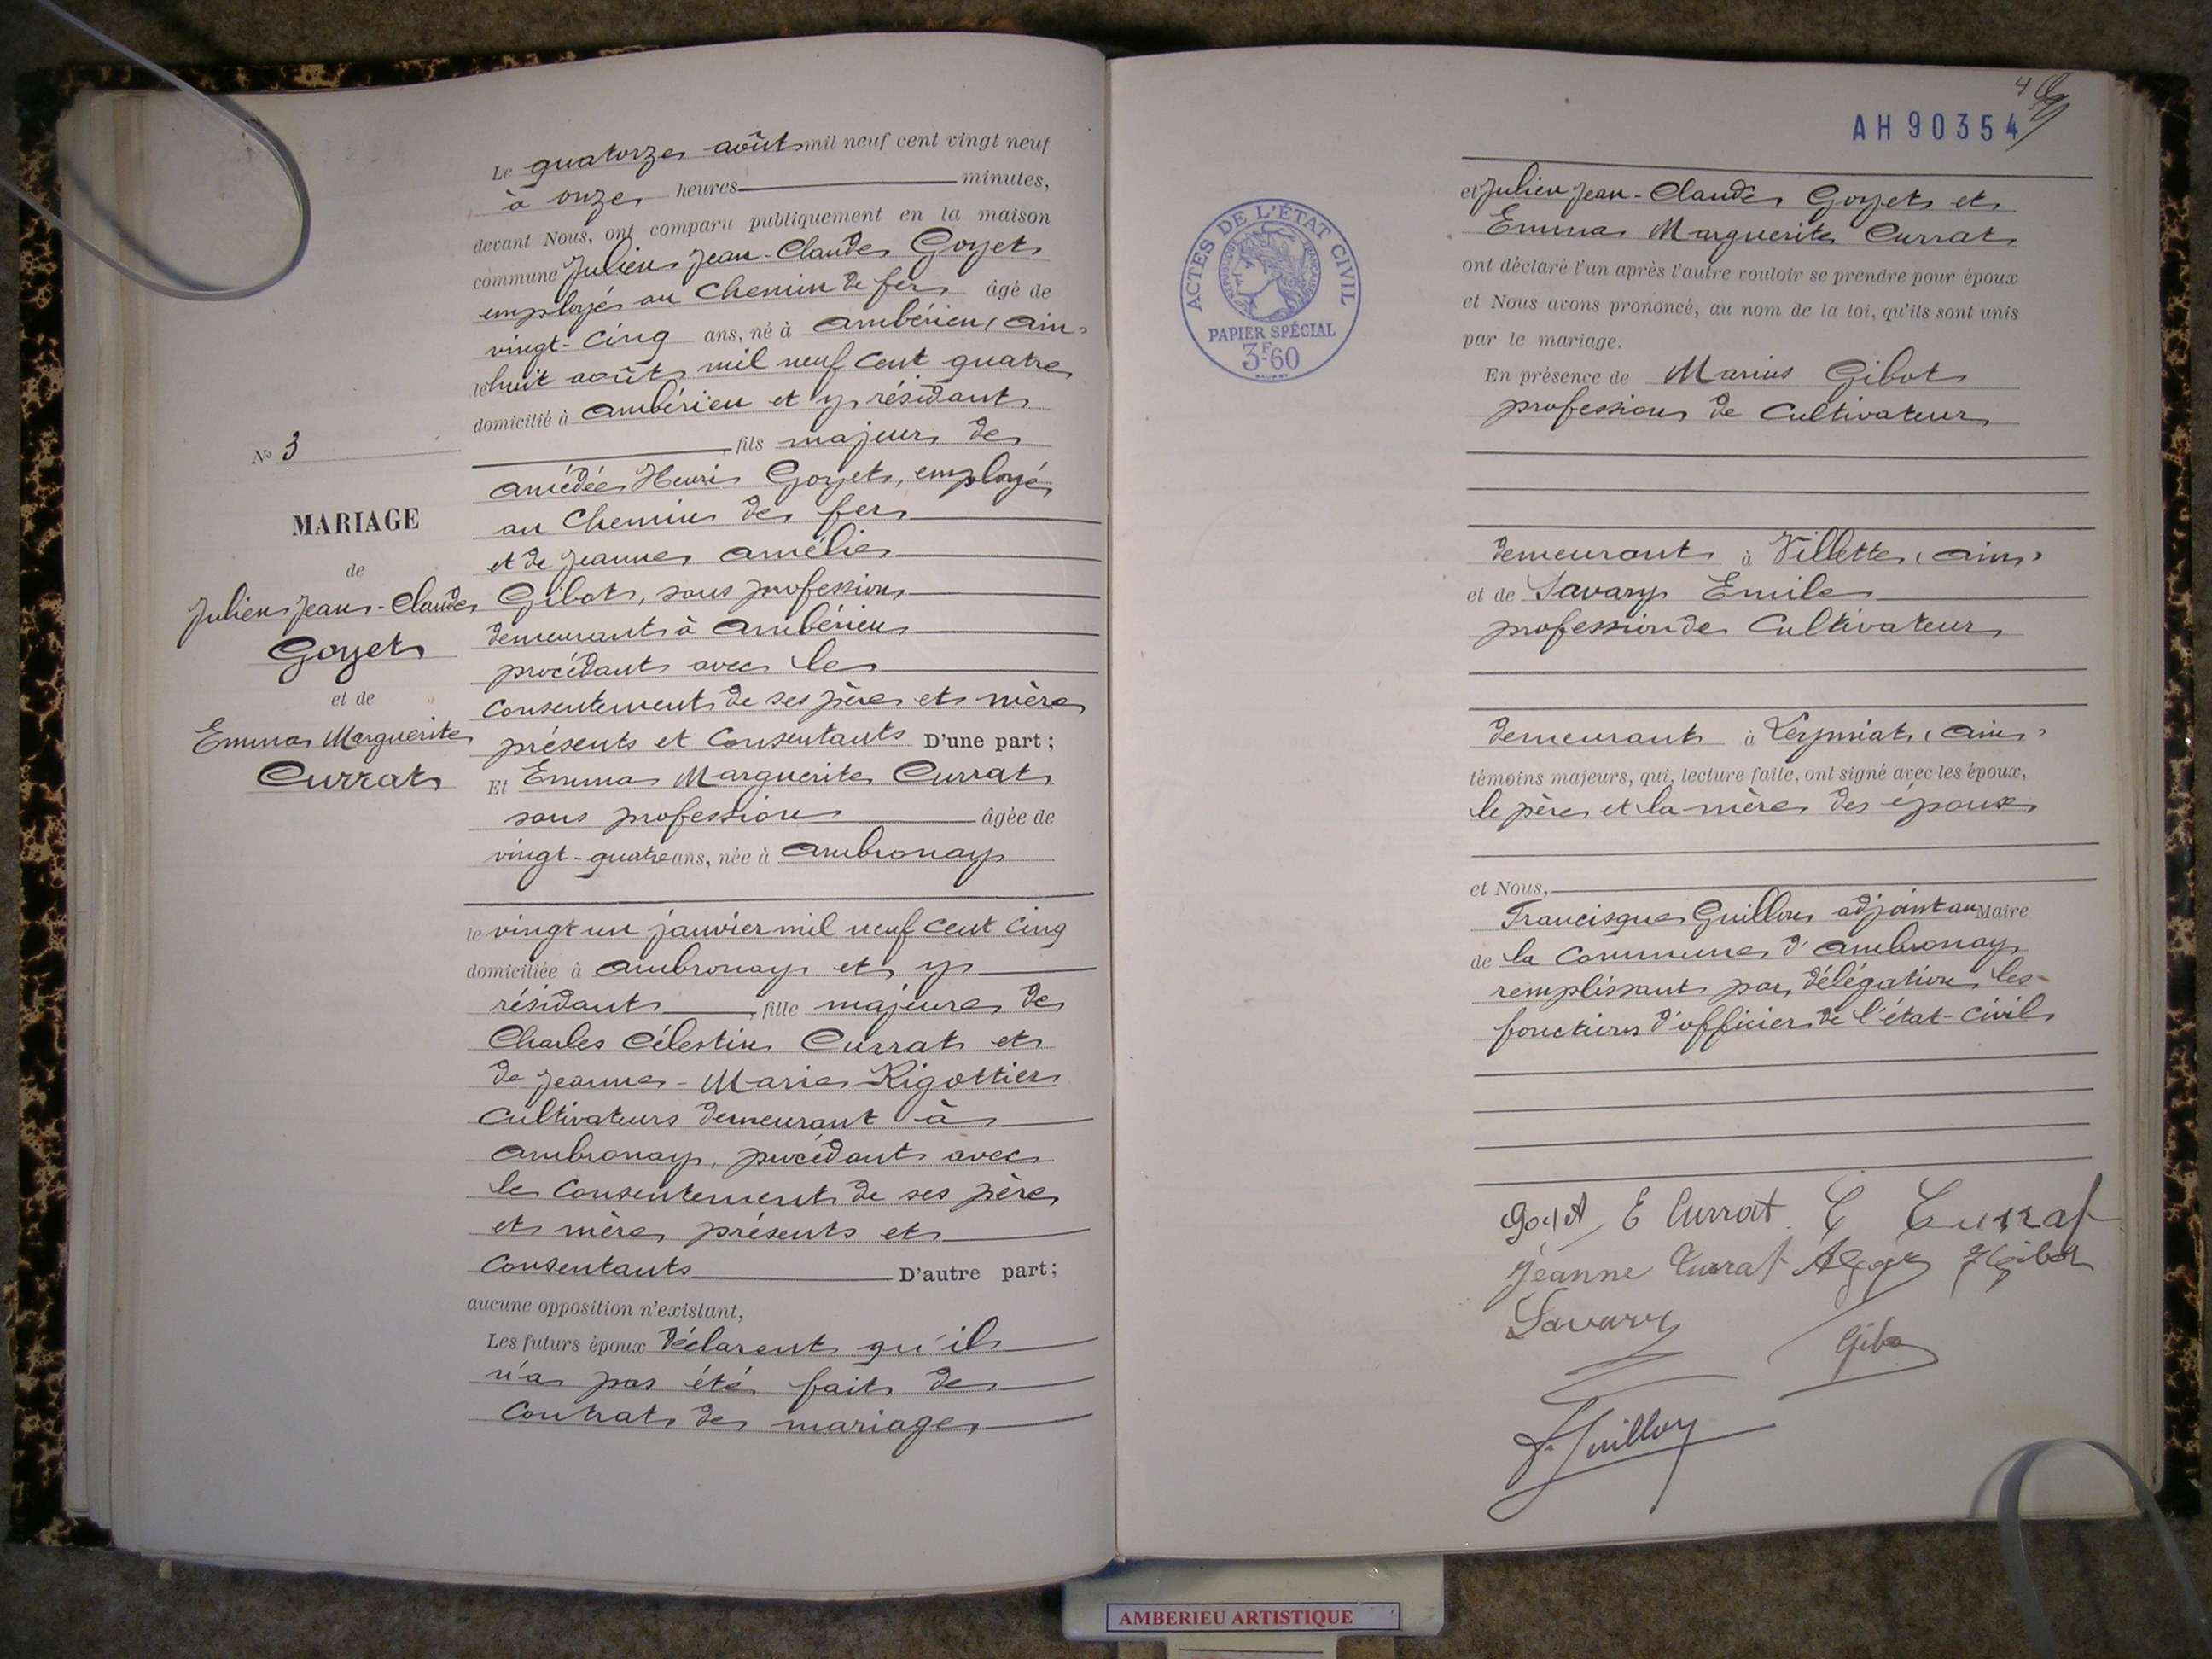 Le quatorze août mil neuf cent vingt neuf
à onze heures minutes,
devant Nous, ont comparu publiquement en la maison
commune Julien Jean-Claude Goyet
employé au Chemin de fer âgé de
vingt-cinq ans, né à Ambérieu, Ain,
le huit août mil neuf cent quatre
domicilié à Ambérieu et y résidant
, fils majeur de
Amédée Henri Goyet, employé
au Chemin de fer
et de Jeanne Amélie
Gibot, sans profession
demeurant à Ambérieu
procédant avec le
consentement de ses père et mère
présents et consentants D'une part ;
Et Emma Marguerite Currat
sans profession âgée de
vingt-quatre ans, née à Ambronay
le vingt un janvier mil neuf cent cinq
domiciliée à Ambronay et y
résidant , fille majeure de
Charles Célestin Currat et
de Jeanne-Marie Rigottier
cultivateurs demeurant à
Ambronay, procédant avec
le consentement de ses père
et mère présents et
consentants D'autre part ;
aucune opposition n'existant,
Les futurs époux déclarent qu'il
n'a pas été fait de
contrat de mariage
N° 3
MARIAGE
de
Julien Jean-Claude
Goyet
et de
Emma Marguerite
Currat
AH 90354
ACTES DE L'ÉTAT CIVIL
RÉPUBLIQUE FRANÇAISE
PAPIER SPÉCIAL
3F.60
et Julien Jean-Claude Goyet et
Emma Marguerite Currat
ont déclaré l'un après l'autre vouloir se prendre pour époux
et Nous avons prononcé, au nom de la loi, qu'ils sont unis
par le mariage.
En présence de Marius Gibot
profession de cultivateur
demeurant à Villette, Ain,
et de Savary Emile
profession de cultivateur
demeurant à Leymiat, Ain,
témoins majeurs, qui, lecture faite, ont signé avec les époux,
le père et la mère des époux
et Nous,
Francisque Guillon adjoint au Maire
de la Commune d'Ambronay
remplissant par délégation les
fonctions d'officier de l'état-civil
Goyet E Currat C Currat
Jeanne Currat
Savary
AMBERIEU ARTISTIQUE